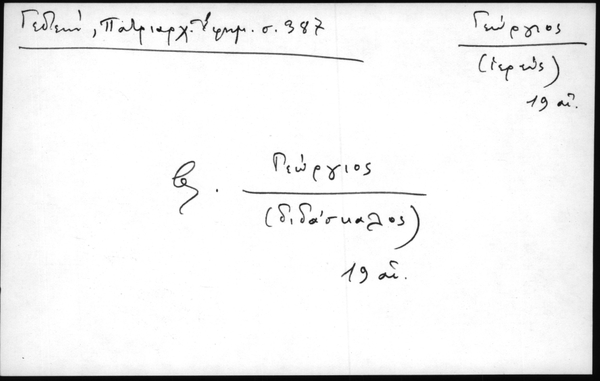 Γεδεών, Πατριαρχ. Ἐφημ. σ. 387
Γεώργιος
(ἱερεύς)
19 αἰ.
βλ. Γεώργιος
(διδάσκαλος)
19 αἰ.